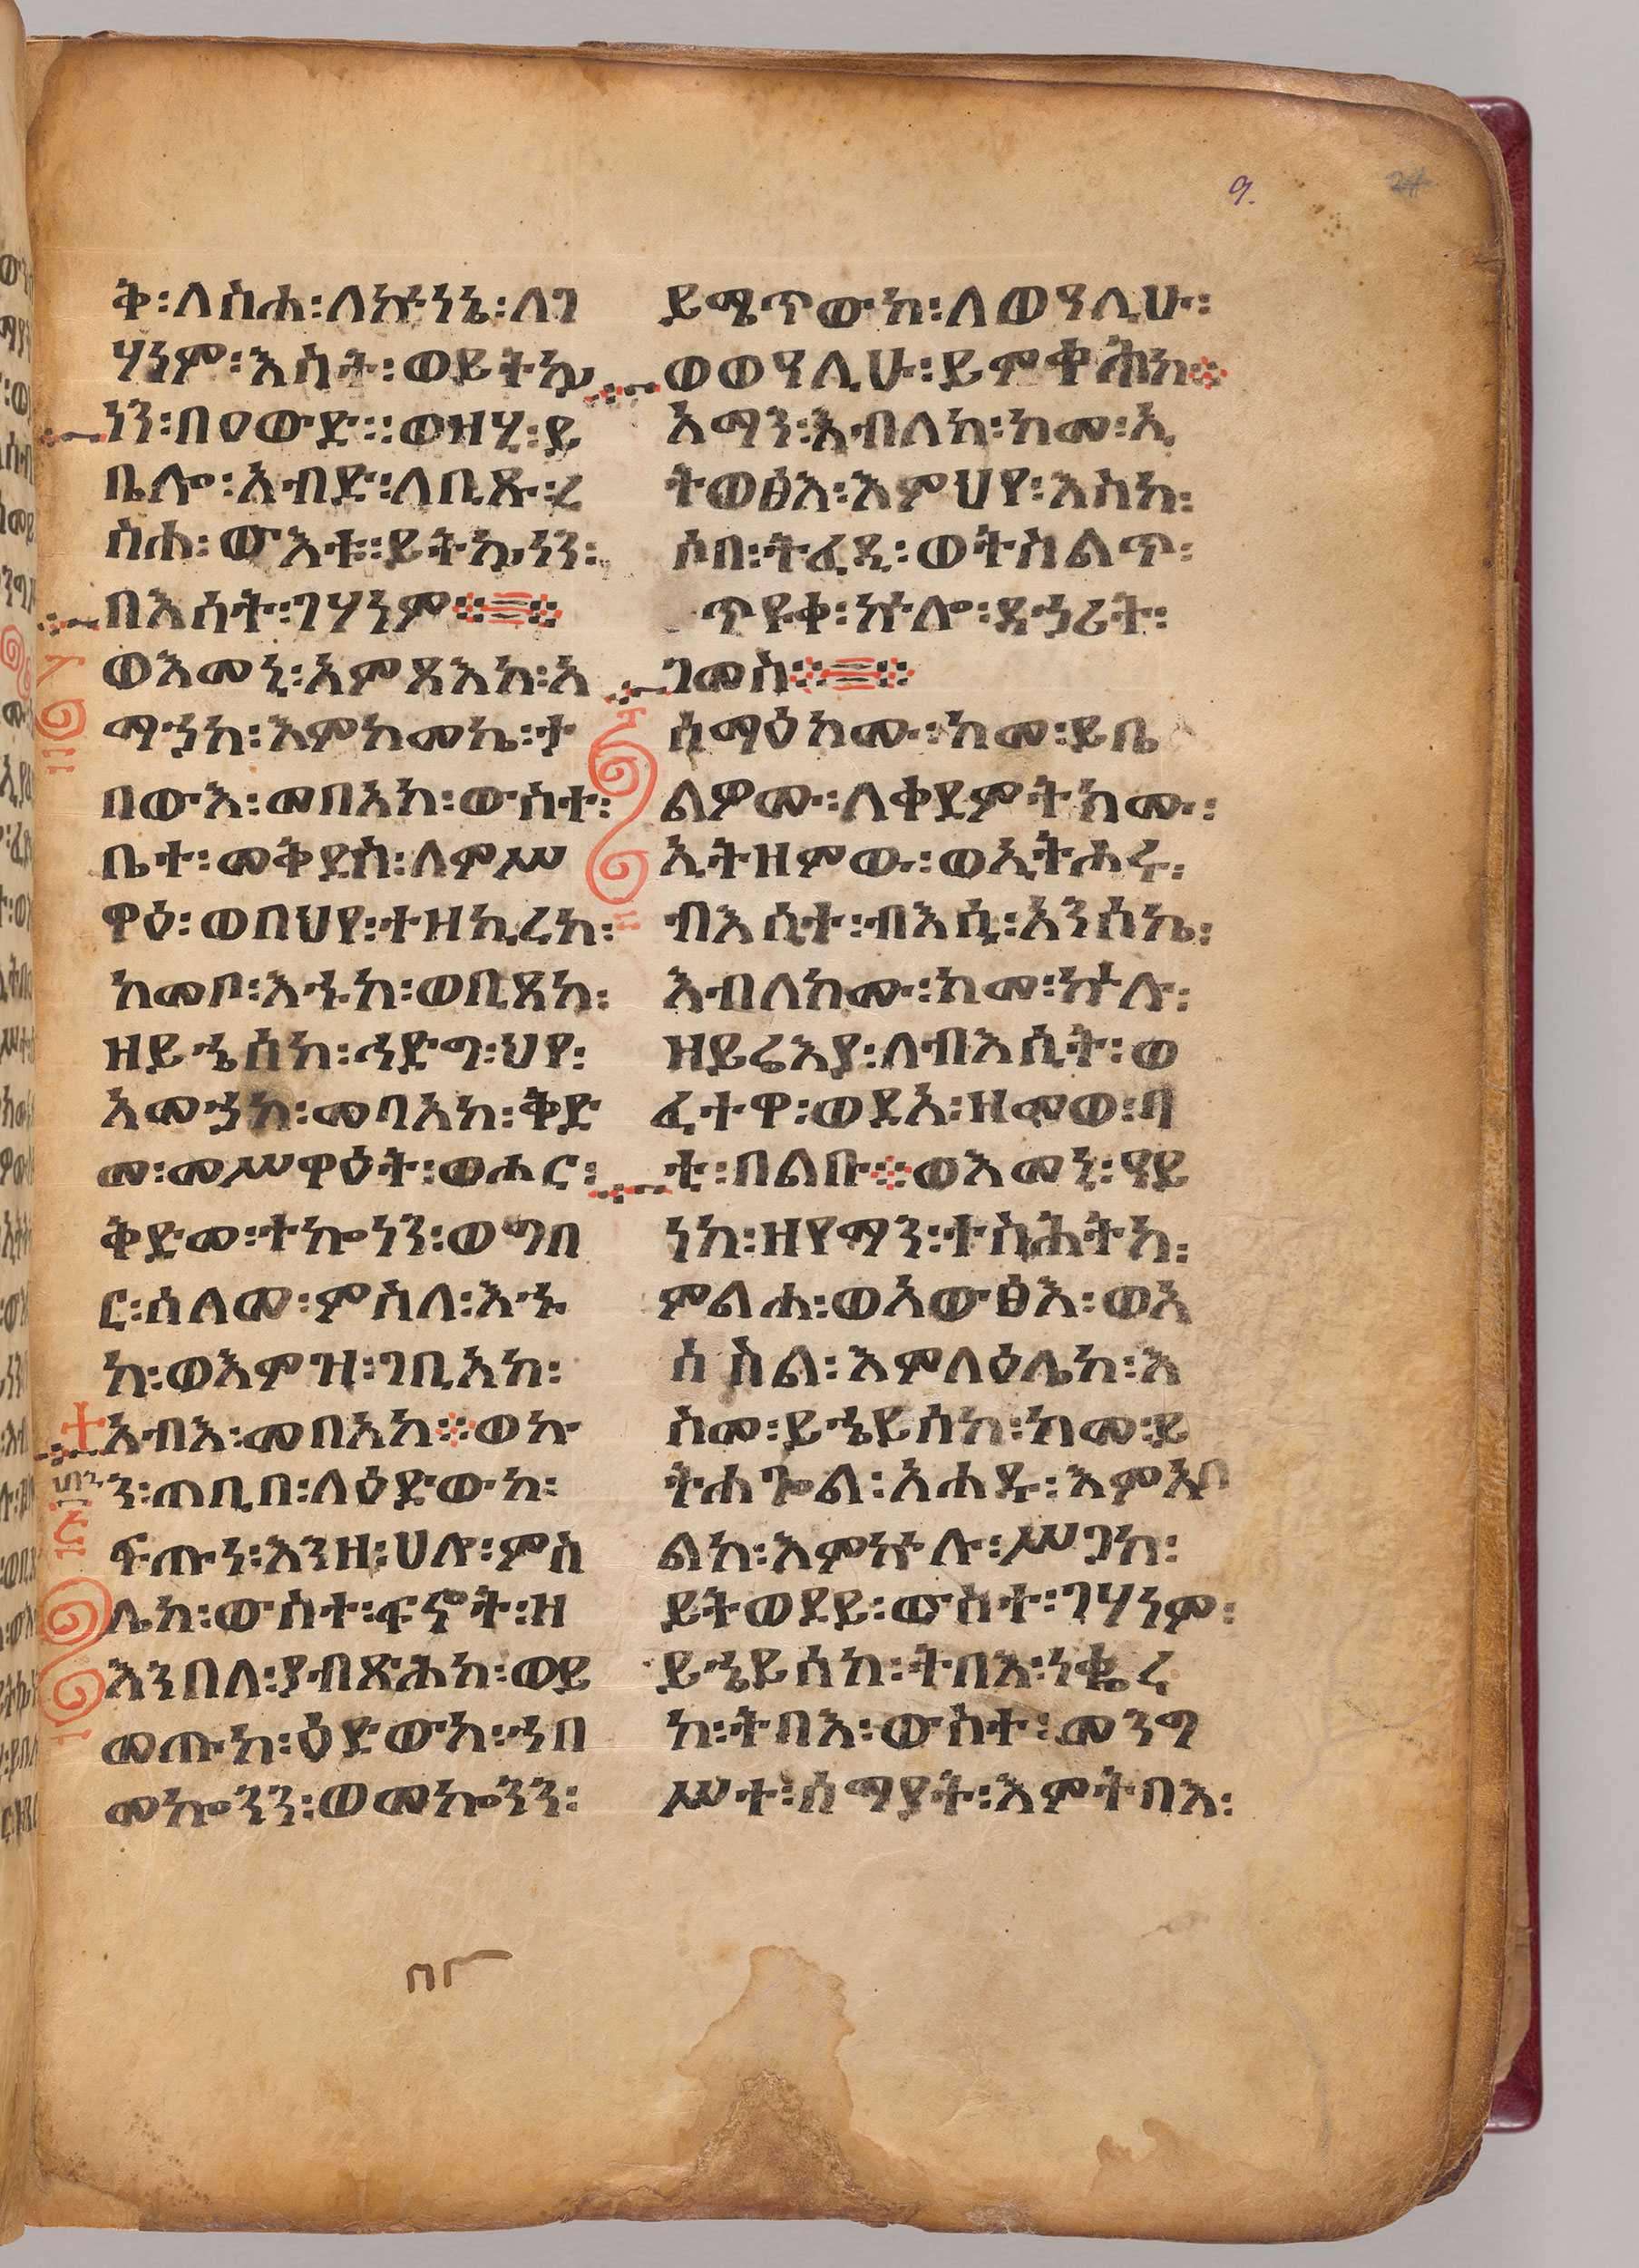 9.
24
ቅ፡ለስሐ፡ለኵነኔ፡ለገ
ሃነም፡እሳት፡ወይትኴ
ነን፡በዐውድ፡፡ወዘሂ፡ይ
ቤሎ፡አብድ፡ለቢጹ፡ረ
ስሐ፡ውእቱ፡ይትኴነን፡
በእሳት፡ገሃነም፨=፨
ወእመኒ፡አምጻእከ፡አ
ማኅከ፡እምከመኬ፡ት
በውእ፡መበአከ፡ውስተ፡
ቤተ፡መቅደስ፡ለምሥ
ዋዕ፡ወበህየ፡ተዘኪረከ፡
ከመቦ፡እኁከ፡ወቢጸከ፡
ዘይኄሰከ፡ኅድግ፡ህየ፡
አመኃከ፡መባአከ፡ቅድ
መ፡መሥዋዕት፡ወሐር፡
ቅድመ፡ተኰነን፡ወግበ
ር፡ሰላመ፡ምስለ፡እኁ
ከ፡ወእምዝ፡ገቢአከ፡
አብእ፡መበአከ፨ወኩ
ን፡ጠቢበ፡ለዕድውከ፡
ፍጡነ፡እንዘ፡ሀሎ፡ምስ
ሌከ፡ውስተ፡ፍኖት፡ዘ
እንበለ፡ያብጽሕከ፡ወይ
መጡከ፡ዕድውከ፡ኀበ
መኰንን፡ወመኰንን፡
ይሜጥውከ፡ለወዓሊሁ፡
ወወዓሊሁ፡ይምቅሕከ፨
አማን፡እብለከ፡ከመ፡ኢ
ትወፅእ፡እምህየ፡እስከ፡
ሶበ፡ትፈዲ፡ወትስልጥ፡
ጥዩቀ፡ኵሎ፡ዴኃሪት፡
ገመስ፨=፨
ሰማዕከሙ፡ከመ፡ይቤ
ልዎሙ፡ለቀደምትከሙ፡
ኢትዘምው፡ወኢትሑሩ፡
ብእሲተ፡ብእሲ፡አንሰኬ፡
እብለከሙ፡ከመ፡ኵሉ፡
ዘይሬእያ፡ለብእሲት፡ወ
ፈተዋ፡ወደአ፡ዘመወ፡ባ
ቲ፡በልቡ፨ወእመኒ፡ዓይ
ነከ፡ዘየማን፡ተስሕትከ፡
ምልሐ፡ወአውፅእ፡ወአ
ሰስል፡እምላዕሌከ፡እ
ስመ፡ይኄይሰከ፡ከመ፡ይ
ትሐጐል፡አሐዱ፡እምአባ
ልከ፡እምኵሉ፡ሥጋከ፡
ይትወደይ፡ውስተ፡ገሃነም፡
ይኄይሰከ፡ትበእ፡ነቋረ
ከ፡ትበእ፡ውስተ፡መንግ
ሥተ፡ሰማያት፡እምትበእ፡